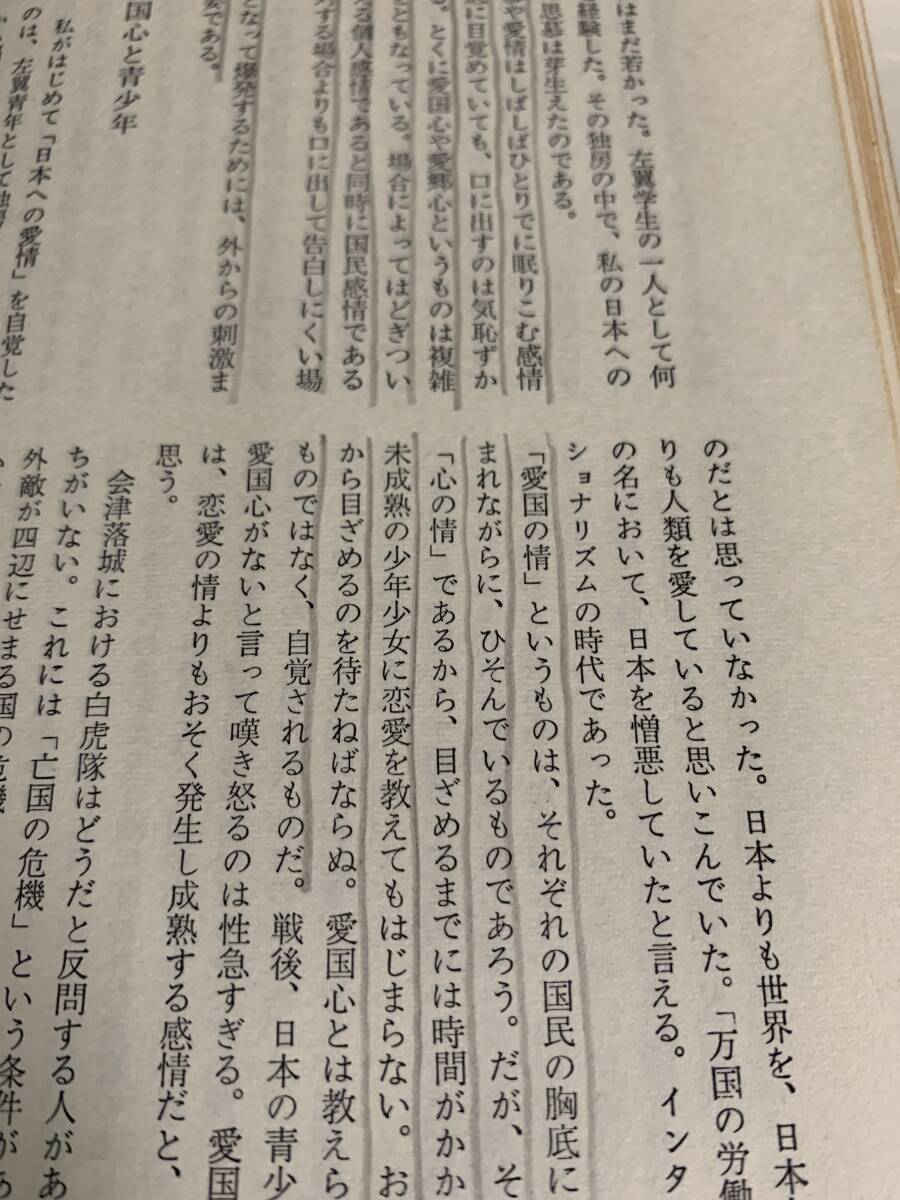 はまだ若かった。左翼学生の一人として何
経験した。その独房の中で、私の日本への
思慕は芽生えたのである。
や愛情はしばしばひとりでに眠りこむ感情
に目覚めていても、口に出すのは気恥ずか
。とくに愛国心や愛郷心というものは複雑
ともなっている。場合によってはどぎつい
る個人感情であると同時に国民感情である
する場合よりも口に出して告白しにくい場
となって爆発するためには、外からの刺激ま
である。
国心と青少年
私がはじめて「日本への愛情」を自覚した
のは、左翼青年として独房
のだとは思っていなかった。日本よりも世界を、日本
りも人類を愛していると思いこんでいた。「万国の労働
の名において、日本を憎悪していたと言える。インタ
ショナリズムの時代であった。
「愛国の情」というものは、それぞれの国民の胸底に
まれながらに、ひそんでいるものであろう。だが、そ
「心の情」であるから、目ざめるまでには時間がかか
未成熟の少年少女に恋愛を教えてもはじまらない。お
から目ざめるのを待たねばならぬ。愛国心とは教えら
ものではなく、自覚されるものだ。戦後、日本の青少
愛国心がないと言って嘆き怒るのは性急すぎる。愛国
は、恋愛の情よりもおそく発生し成熟する感情だと、
思う。
会津落城における白虎隊はどうだと反問する人があ
ちがいない。これには「亡国の危機」という条件があ
外敵が四辺にせまる国の危機